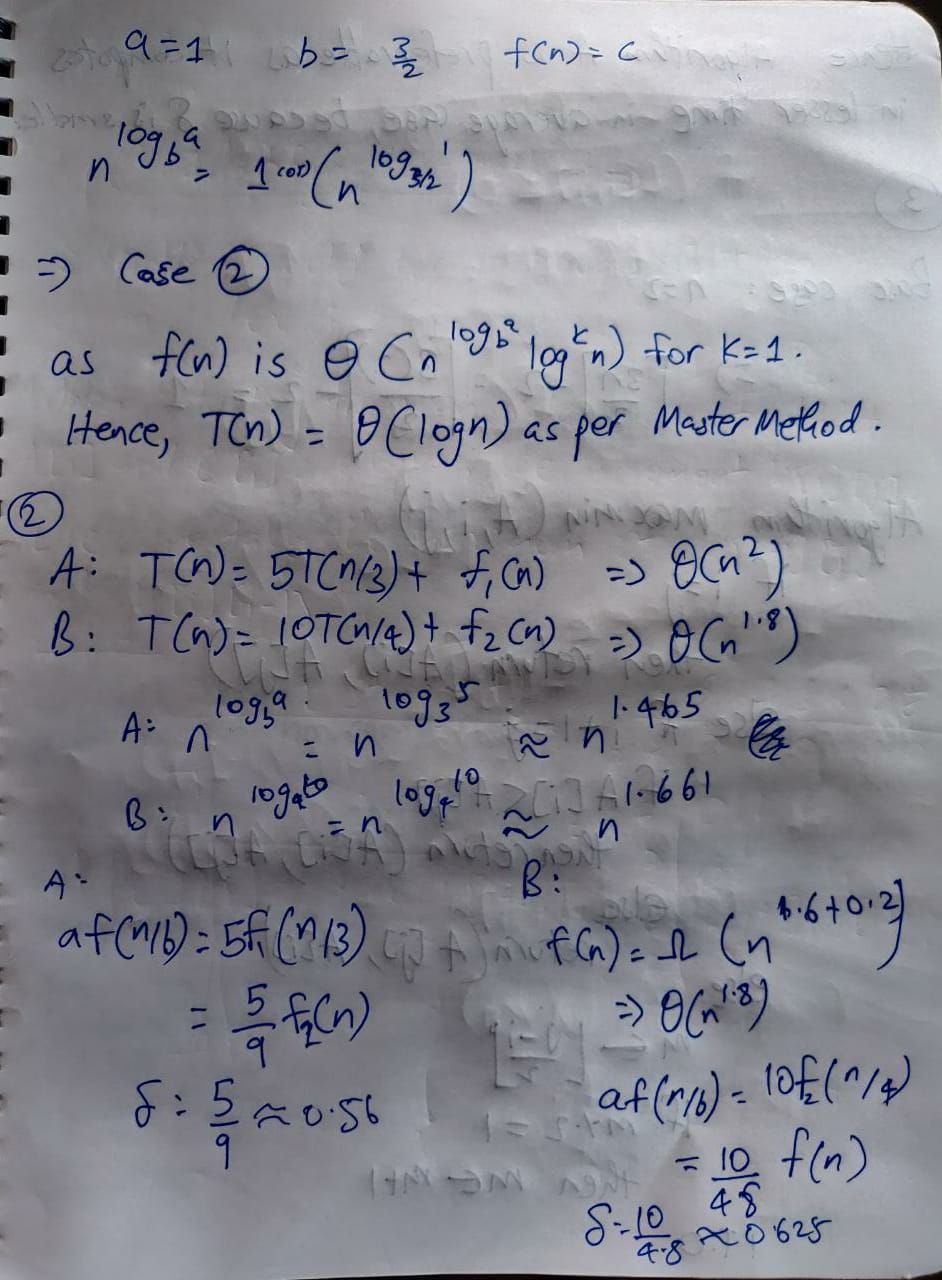 a = 1 b = 3/2 f(n) = c
n^log_b a = 1 (or) (n^log_3/2 1)
=> Case ②
as f(n) is θ(n^log_b a log^k n) for k=1.
Hence, T(n) = θ(logn) as per Master Method.
②
A: T(n) = 5T(n/3) + f₁(n) => θ(n²)
B: T(n) = 10T(n/4) + f₂(n) => θ(n^1.8)
A: n^log_b a = n^log_3 5 ≈ n^1.465
B: n^log_4 10 = n^log_4 10 ≈ n^1.661
A:
af(n/b) = 5f₁(n/3)
= 5/9 f₂(n)
δ: 5/9 ≈ 0.56
B:
f(n) = Ω(n^1.6+0.2)
=> θ(n^1.8)
af(n/b) = 10f₂(n/4)
= 10/48 f(n)
δ = 10/4.8 ≈ 0.625